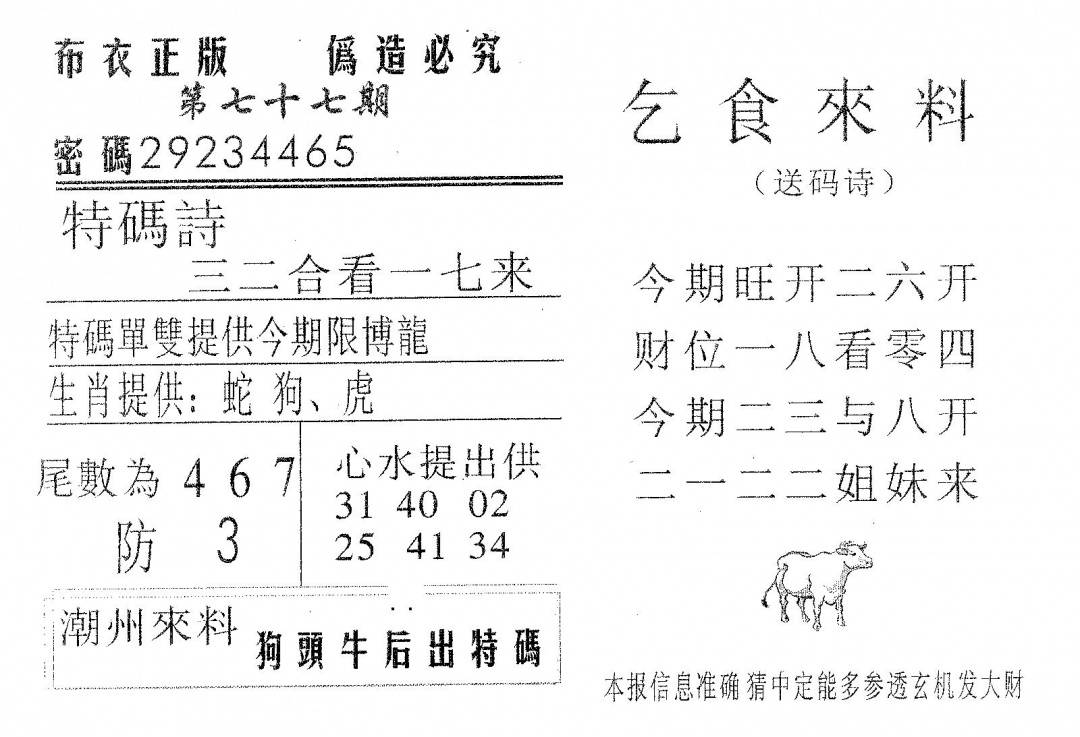 布衣正版 僞造必究
第七十七期
密碼29234465
特碼詩
三二合看一七来
特碼單雙提供今期限博龍
生肖提供：蛇 狗、虎
尾數為 4 6 7
防 3
心水提出供
31 40 02
25 41 34
潮州來料
狗頭牛后出特碼
乞食來料
（送码诗）
今期旺开二六开
财位一八看零四
今期二三与八开
二一二二姐妹来
本报信息准确 猜中定能多参透玄机发大财